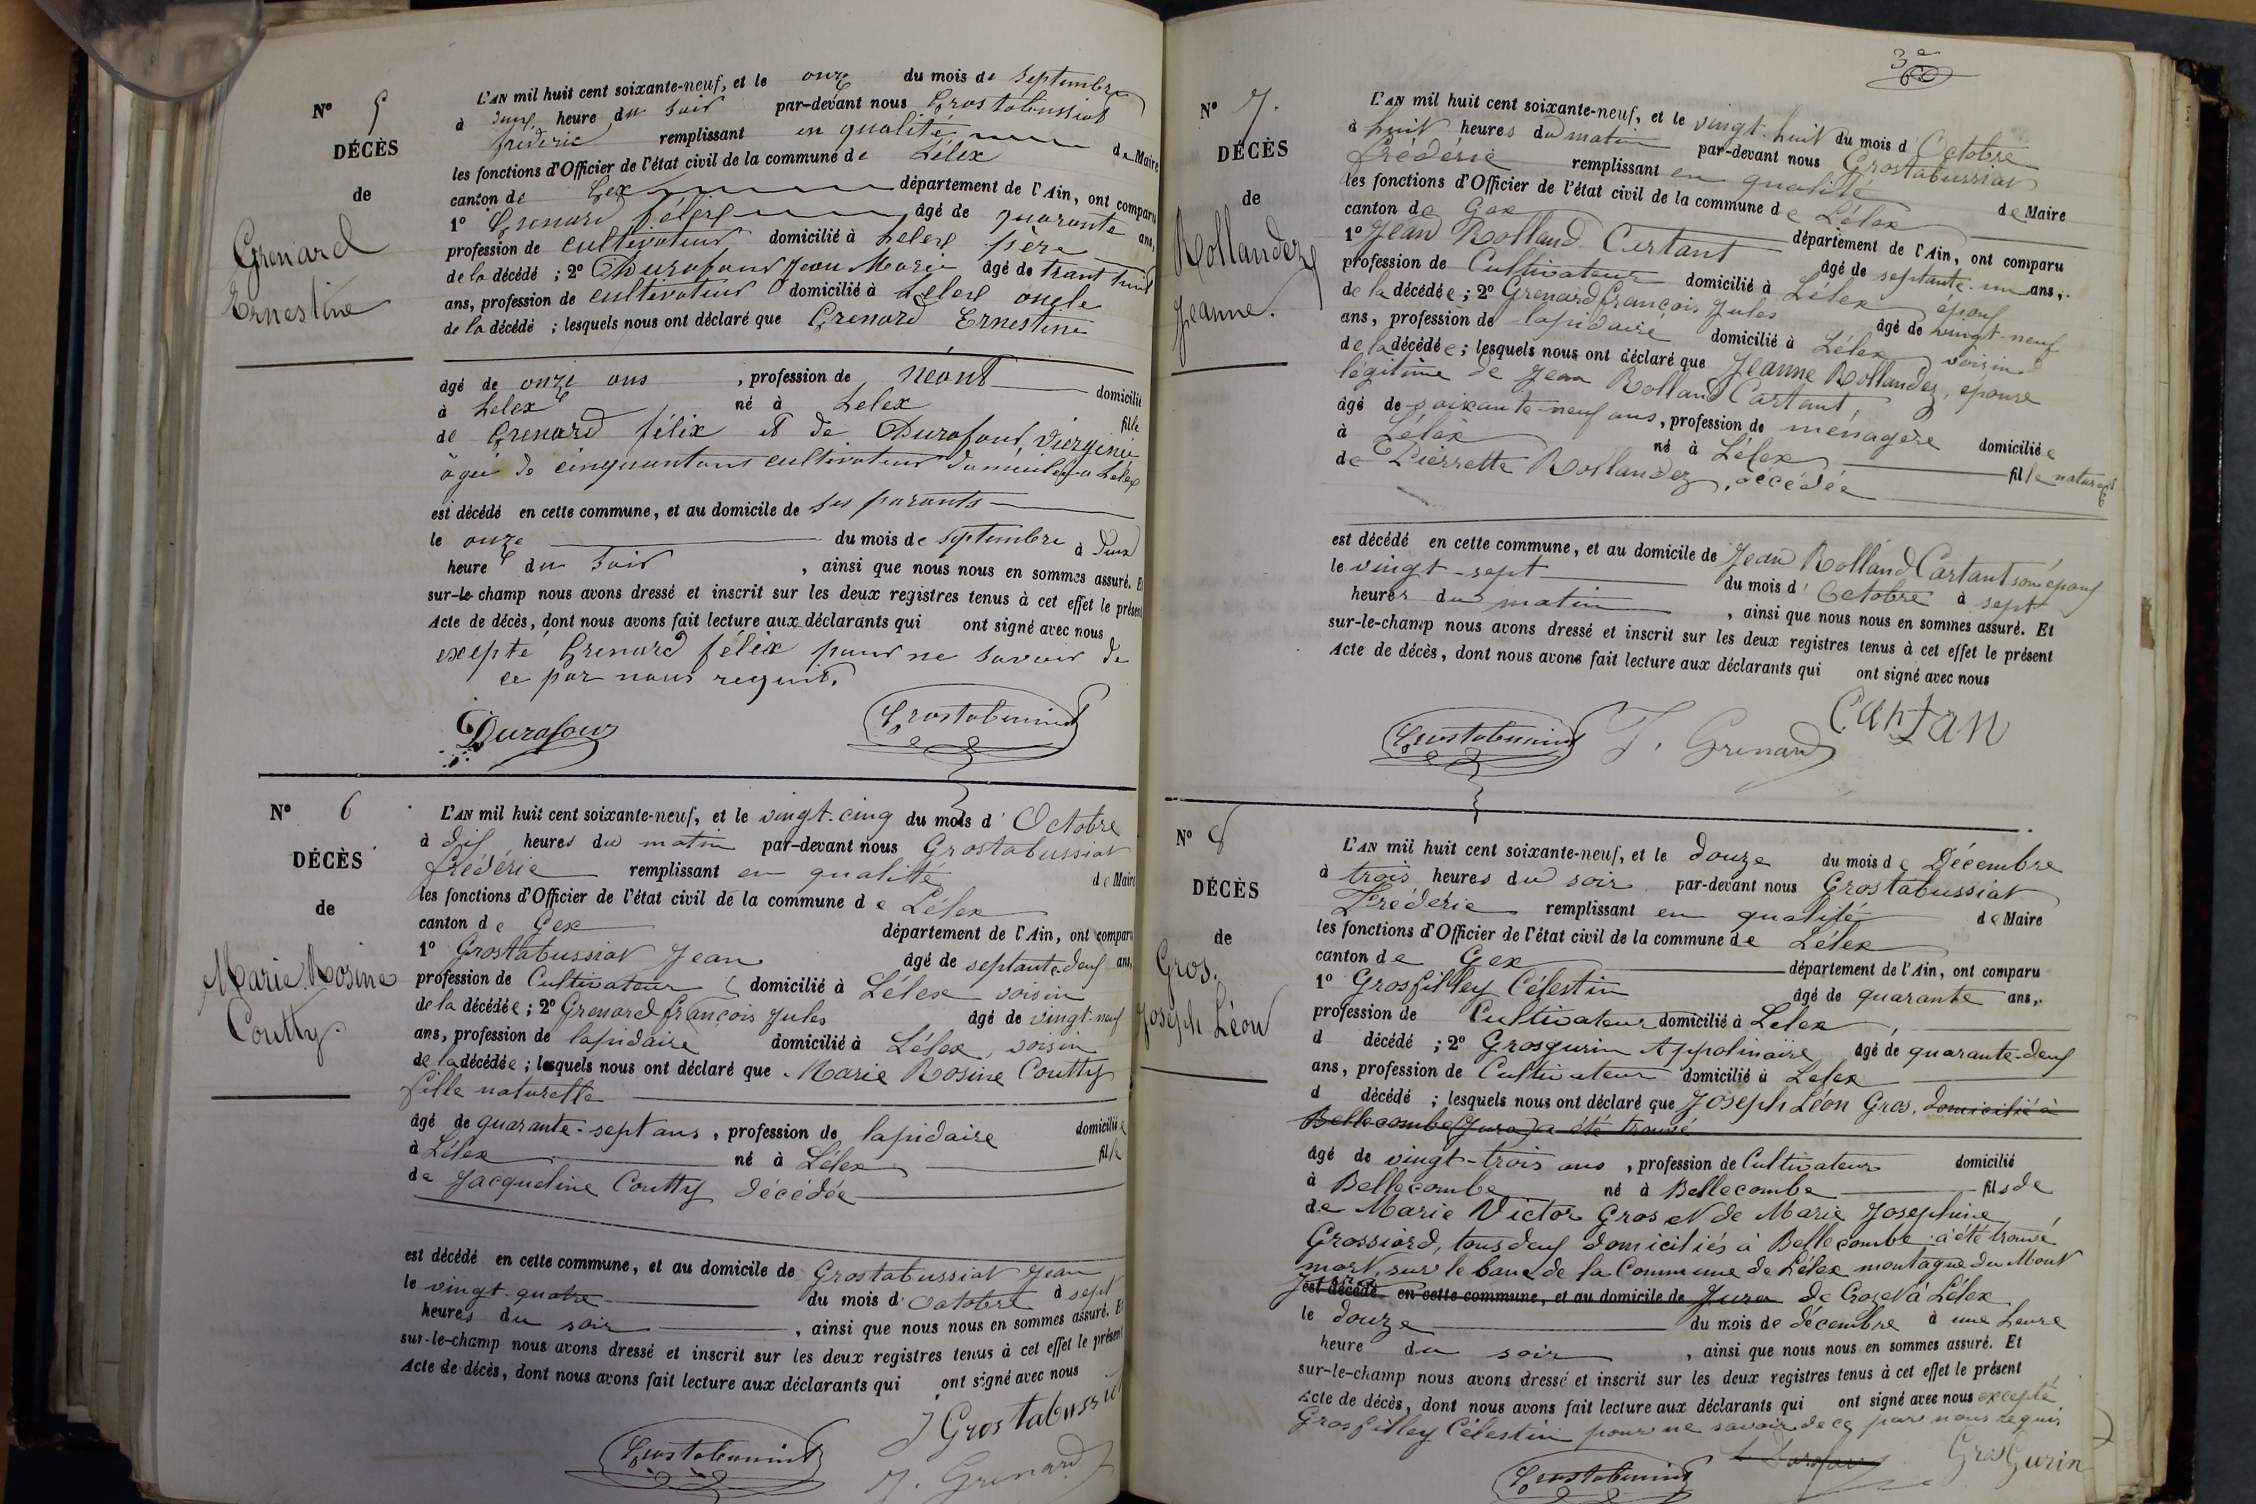 N° 5
DÉCÈS
de
Grenard
Ernestine
L'AN mil huit cent soixante-neuf, et le onze du mois de septembre
à heure du soir par-devant nous Grostabussiat
frédéric remplissant en qualité de Maire
les fonctions d'Officier de l'état civil de la commune de Lélex
canton de Gex département de l'Ain, ont comparu
1° Grenard félix âgé de quarante ans,
profession de cultivateur domicilié à Lelex père
de la décédé ; 2° Durafour Jean Marie âgé de trant huit
ans, profession de cultivateur domicilié à Lelex oncle
de la décédé ; lesquels nous ont déclaré que Grenard Ernestine
âgé de onze ans , profession de néant domicilié
à Lelex né à Lelex fille
de Grenard félix et de Durafour Virginie
âgée de cinquantans cultivateur domiciliés a Lelex
est décédé en cette commune, et au domicile de ses parants
le onze du mois de septembre à deux
heure du soir , ainsi que nous nous en sommes assuré. Et
sur-le-champ nous avons dressé et inscrit sur les deux registres tenus à cet effet le présent
Acte de décès, dont nous avons fait lecture aux déclarants qui ont signé avec nous
exepté Grenard félix pour ne savoir de
ce par nous requis.
Durafour Grostabussiat
N° 6
DÉCÈS
de
Marie Rosine
Coutty.
L'AN mil huit cent soixante-neuf, et le vingt-cinq du mois d'Octobre
à dix heures du matin par-devant nous Grostabussiat
frédéric remplissant en qualité de Maire
les fonctions d'Officier de l'état civil de la commune de Lélex
canton de Gex département de l'Ain, ont comparu
1° Grostabussiat Jean âgé de septante-deux ans,
profession de Cultivateur domicilié à Lélex voisin
de la décédée ; 2° Grenard françois Jules âgé de vingt-neuf
ans, profession de lapidaire domicilié à Lélex, voisin
de la décédée ; lesquels nous ont déclaré que Marie Rosine Coutty
fille naturelle
âgé de quarante-sept ans, profession de lapidaire domiciliée
à Lélex né à Lélex fille
de Jacqueline Coutty décédée
est décédé en cette commune, et au domicile de Grostabussiat Jean
le vingt-quatre du mois d'octobre à sept
heures du soir , ainsi que nous nous en sommes assuré. Et
sur-le-champ nous avons dressé et inscrit sur les deux registres tenus à cet effet le présent
Acte de décès, dont nous avons fait lecture aux déclarants qui ont signé avec nous
J Grostabussiat
Grostabussiat J. Grenard
3e
N° 7.
DÉCÈS
de
Rollandez
Jeanne.
L'AN mil huit cent soixante-neuf, et le vingt-huit du mois d'Octobre
à huit heures du matin par-devant nous Grostabussiat
frédéric remplissant en qualité de Maire
les fonctions d'Officier de l'état civil de la commune de Lélex
canton de Gex département de l'Ain, ont comparu
1° Jean Rolland Cartant âgé de septante-un ans,
profession de Cultivateur domicilié à Lélex époux
de la décédée ; 2° Grenard françois Jules âgé de vingt-neuf
ans, profession de lapidaire domicilié à Lélex voisin
de la décédée ; lesquels nous ont déclaré que Jeanne Rollandez, épouse
légitime de Jean Rolland Cartant,
âgé de soixante-neuf ans, profession de ménagère domiciliée
à Lélex né à Lélex fille naturelle
de Pierrette Rollandez, décédée
est décédé en cette commune, et au domicile de Jean Rolland Cartant son époux
le vingt-sept du mois d'Octobre à sept
heures du matin , ainsi que nous nous en sommes assuré. Et
sur-le-champ nous avons dressé et inscrit sur les deux registres tenus à cet effet le présent
Acte de décès, dont nous avons fait lecture aux déclarants qui ont signé avec nous
Grostabussiat J. Grenard Cartan
N° 8
DÉCÈS
de
Gros.
Joseph Léon
L'AN mil huit cent soixante-neuf, et le douze du mois de Décembre
à trois heures du soir par-devant nous Grostabussiat
Frédéric remplissant en qualité de Maire
les fonctions d'Officier de l'état civil de la commune de Lélex
canton de Gex département de l'Ain, ont comparu
1° Grosfilley Célestin âgé de quarante ans,
profession de Cultivateur domicilié à Lélex,
d décédé ; 2° Grosgurin Appolinaire âgé de quarante-deux
ans, profession de Cultivateur domicilié à Lelex
d décédé ; lesquels nous ont déclaré que Joseph Léon Gros, domicilié à
Bellecombe (Jura) a été trouvé
âgé de vingt-trois ans , profession de Cultivateur domicilié
à Bellecombe né à Bellecombe fils de
de Marie Victor Gros et de Marie Josephine
Grossiord, tous deux domiciliés à Bellecombe a été trouvé
mort, sur le banc de la Commune de Lélex montagne du Mont
Jura est décédé en cette commune, et au domicile de Jura de Crozet à Lélex
le douze du mois de décembre à une heure
heure du soir , ainsi que nous nous en sommes assuré. Et
sur-le-champ nous avons dressé et inscrit sur les deux registres tenus à cet effet le présent
Acte de décès, dont nous avons fait lecture aux déclarants qui ont signé avec nous excepté
Grosfilley Célestin pour ne savoir de ce par nous requis
Grostabussiat Grosgurin